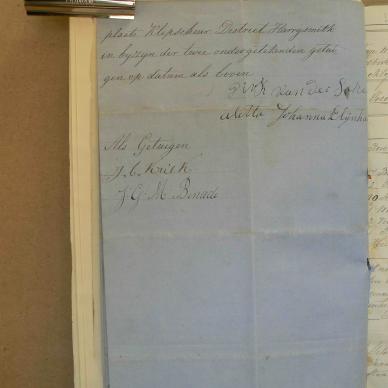 plaats Klipscheur District Harrysmith
in byzyn der twee ondergetekenden getui
gen op datum als boven
Dirk van der
Aletta Johanna
Als Getuigen
J. C. Kriek
J. G. M. Benade